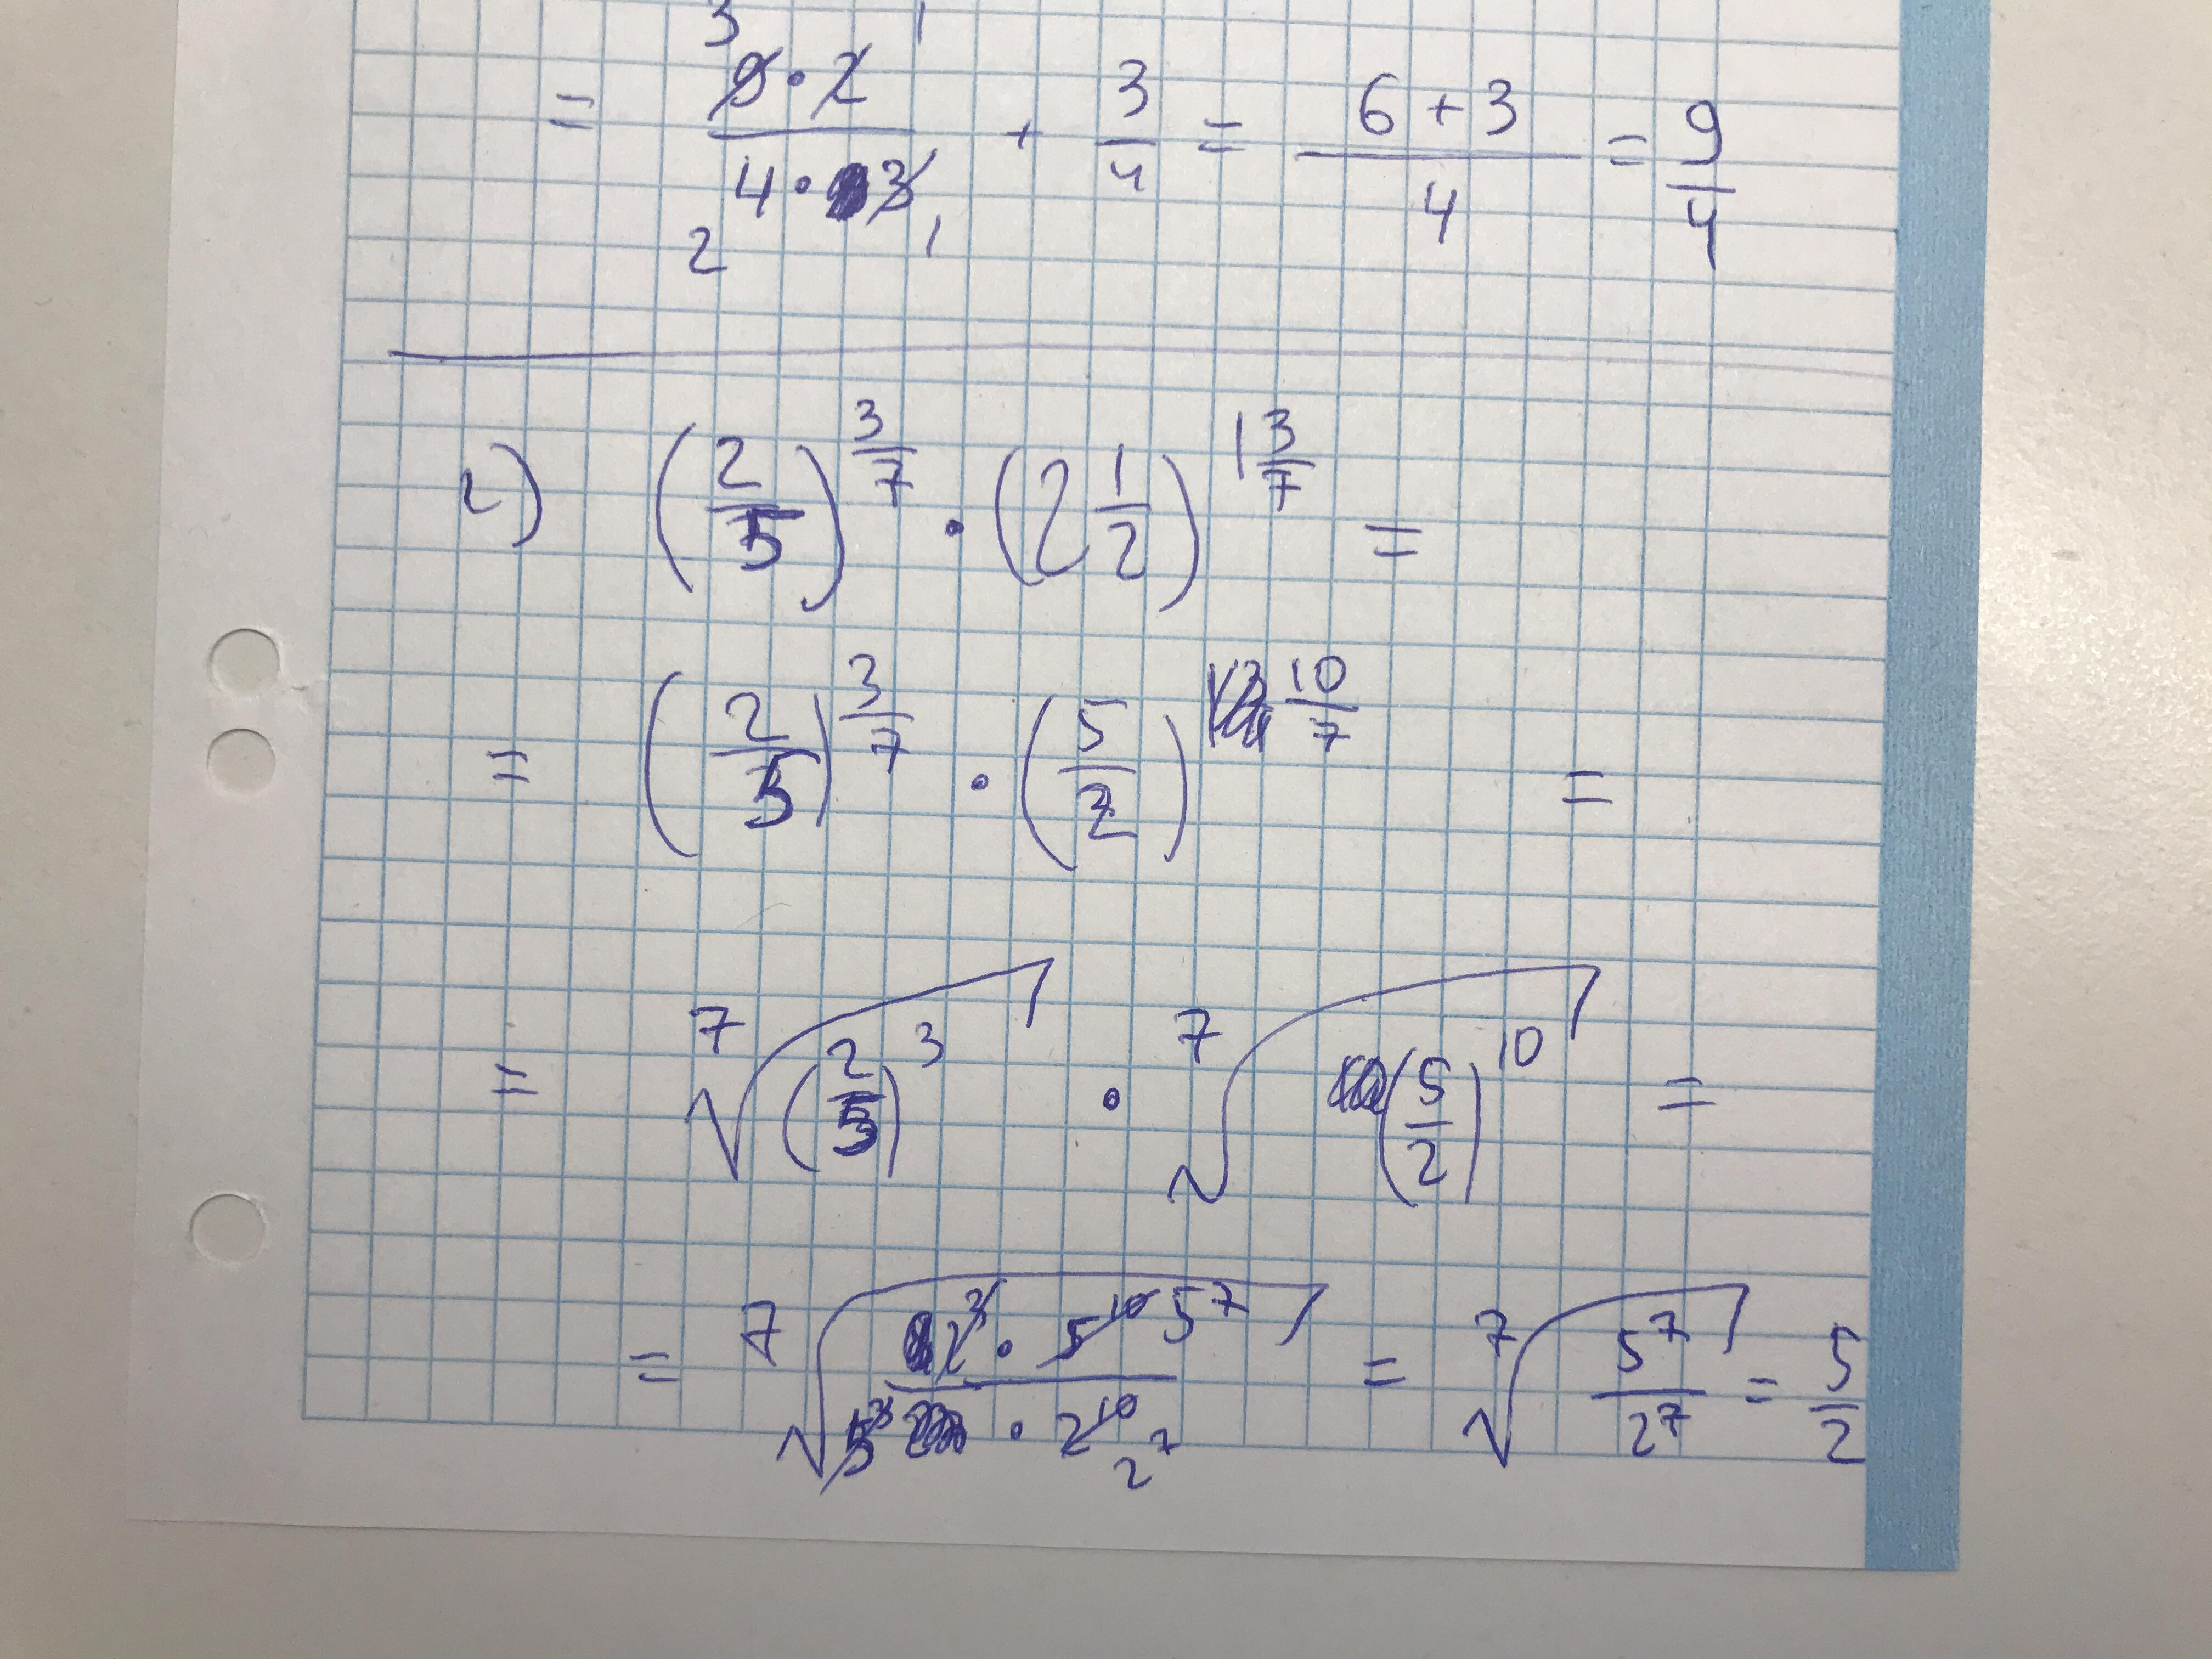 3 1
= 9·2/4·3 + 3/4 = 6+3/4 = 9/4
2 1
г) (2/5)^3/7 · (2 1/2)^1 3/7 =
= (2/5)^3/7 · (5/2)^10/7 =
= 7√(2/5)^3 · 7√(5/2)^10 =
= 7√2^3 · 5^10 5^7/5^3 · 2^10 2^7 = 7√5^7/2^7 = 5/2